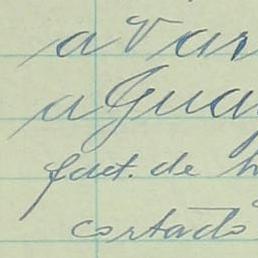 a var
a gua
fact. de h
cortado